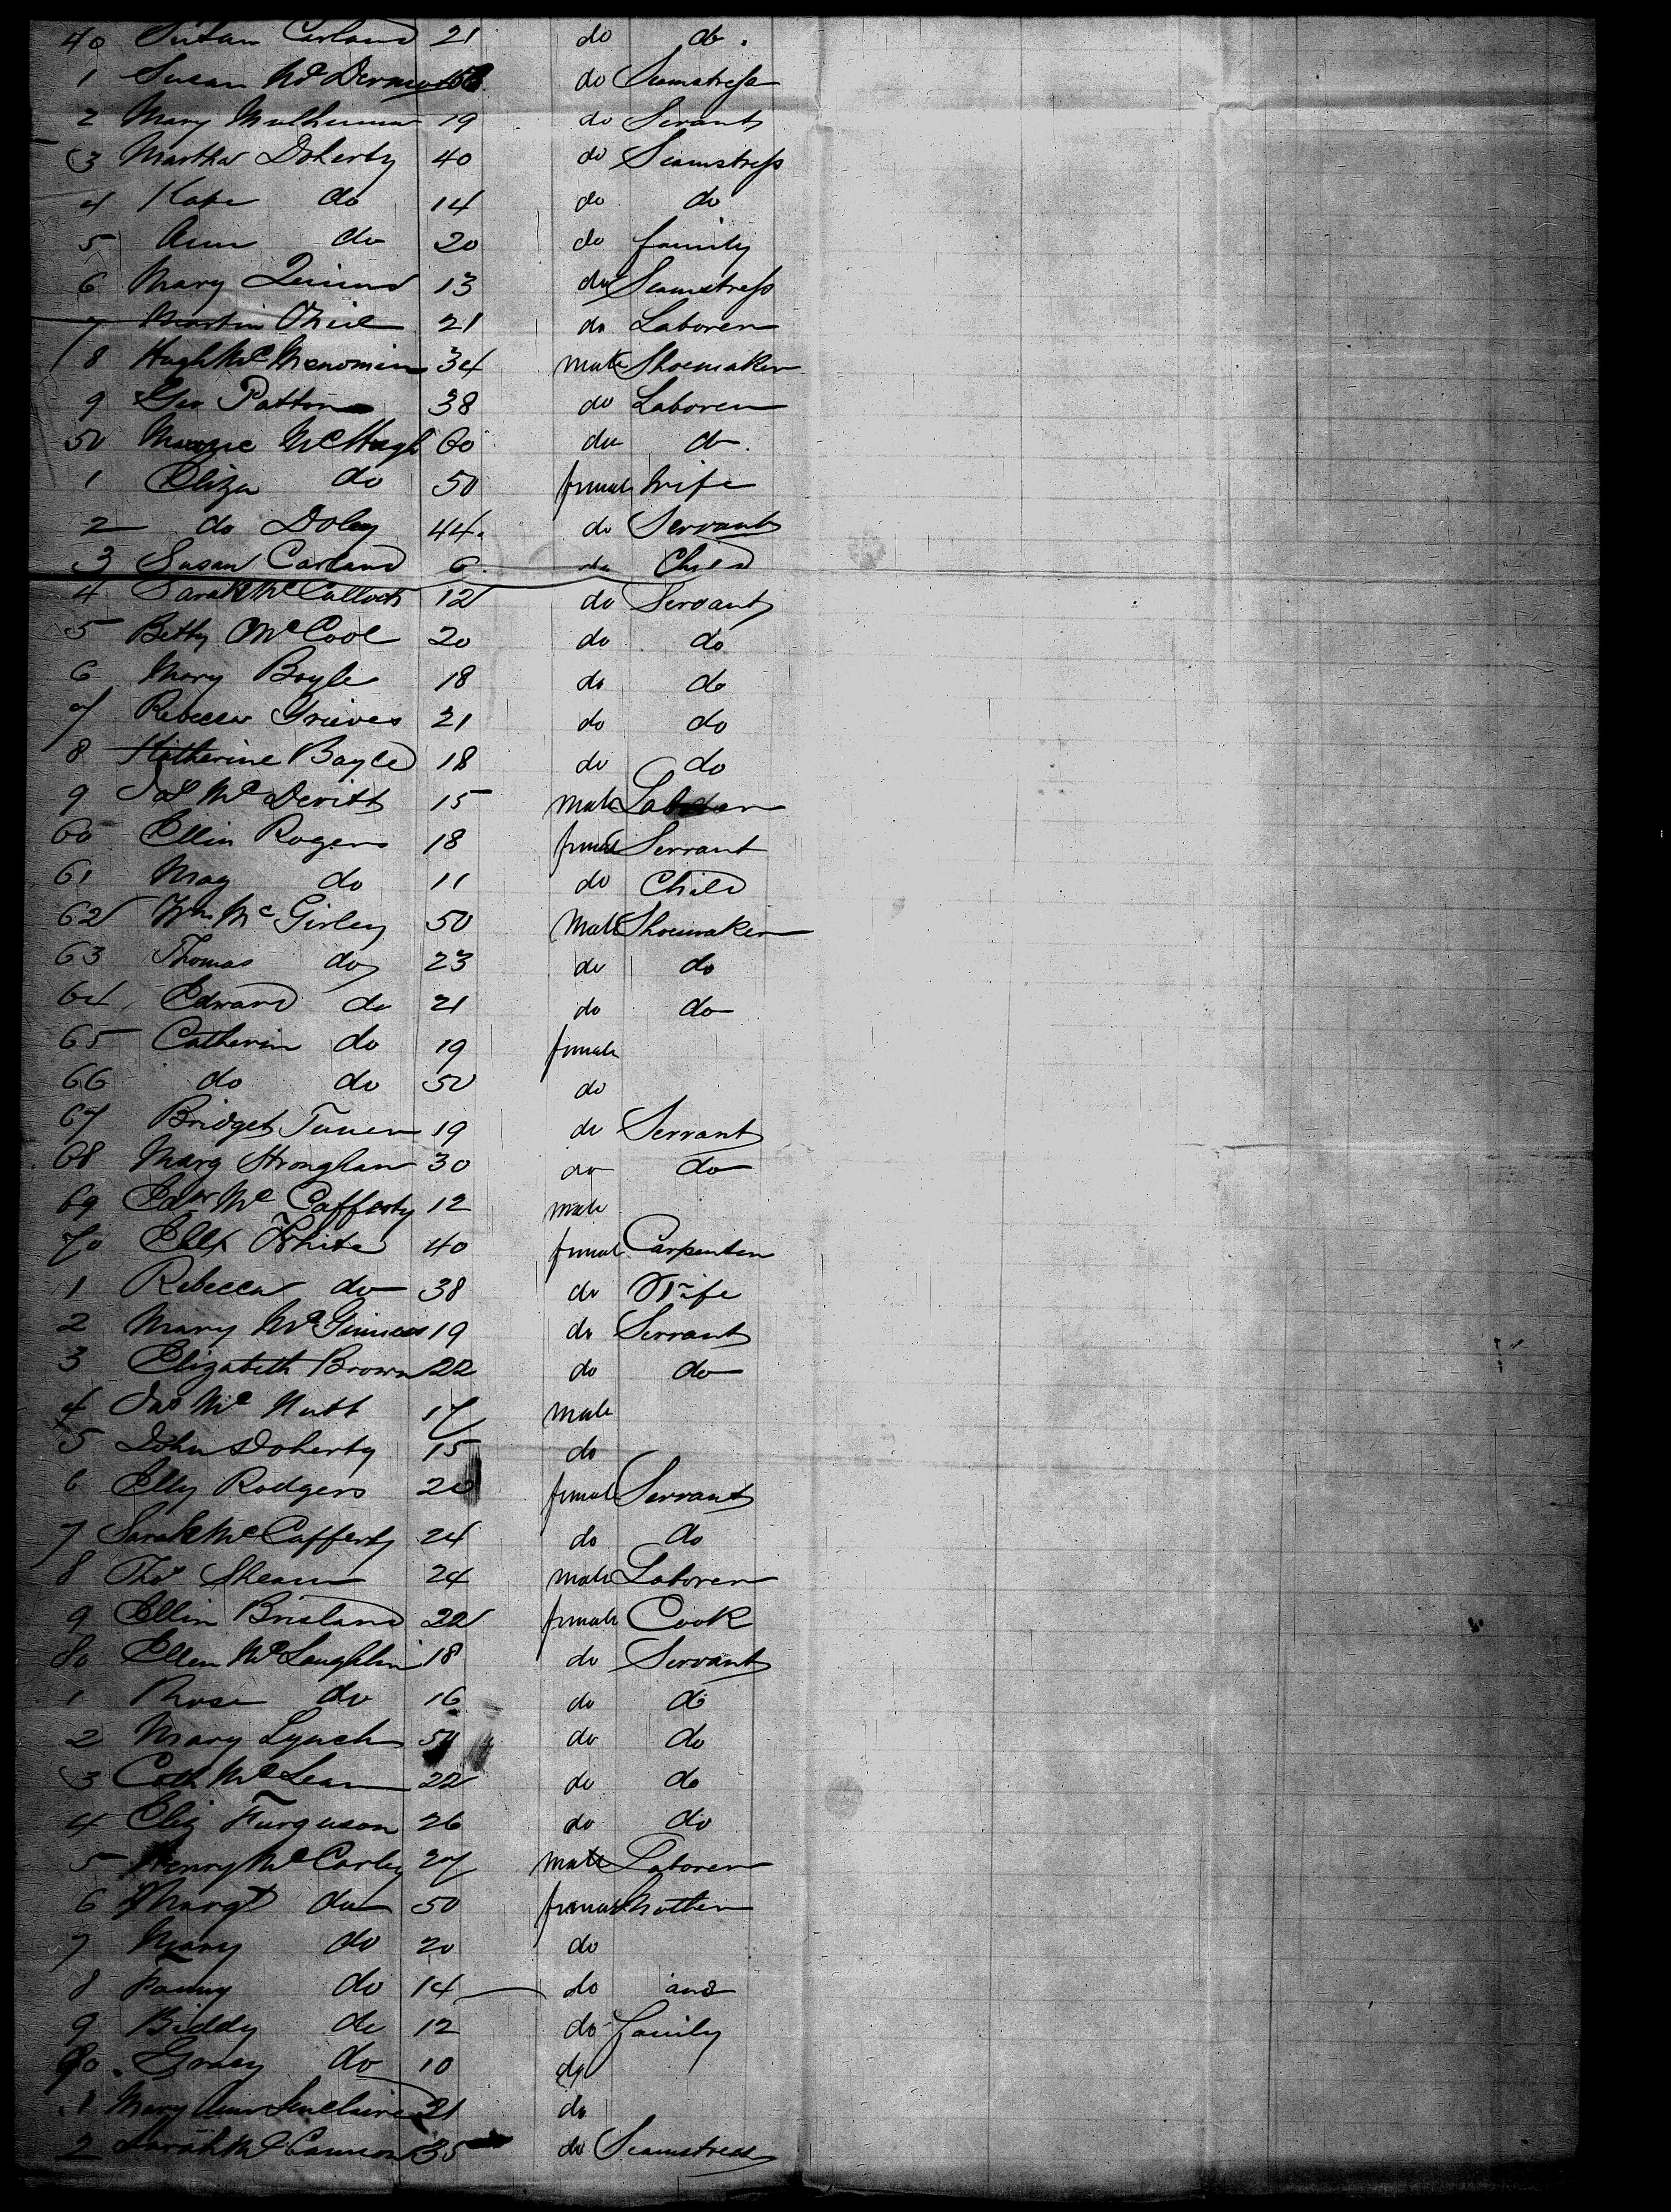 40 Susan Carland 21 do do.
1 Susan McDermott do Seamstress
2 Mary 19 do Servant
3 Martha Doherty 40 do Seamstress
4 Kate do 14 do do
5 Ann do 20 do family
6 Mary Quinn 13 do Seamstress
7 Martin O'Neil 21 do Laborer
8 Hugh McMenomin 34 male Shoemaker
9 Geo Patton 38 do Laborer
50 McHugh 60 do do.
1 Eliza do 50 female Wife
2 do Doley 44. do Servant
3 Susan Carland 6 do Child
4 Sarah McColloch 12 do Servant
5 Betty McCool 20 do do
6 Mary Boyle 18 do do
7 Rebecca Grieves 21 do do
8 Katherine Bayle 18 do do
9 Jas McDevitt 15 male Laborer
60 Ellin Rogers 18 female Servant
61 Mag do 11 do Child
62 Wm McGirley 50 Male Shoemaker
63 Thomas do 23 do do
64 Edward do 21 do do
65 Catherin do 19 female
66 do do 50 do
67 Bridget 19 do Servant
68 Marg Stronghan 30 do do
69 Edw McCafferty 12 male
70 White 40 female Carpenter
1 Rebecca do 38 do Wife
2 Mary McGinness 19 do Servant
3 Elizabeth Brown 22 do do
4 Jas McNutt 17 male
5 John Doherty 15 do
6 Elly Rodgers 20 female Servant
7 Sarah McCafferty 24 do do
8 Thos Shearn 24 male Laborer
9 Ellin Brisland 22 female Cook
80 Ellen McLaughlin 18 do Servant
1 Rose do 16 do do
2 Mary Lynch 50 do do
3 Cath McLean 22 do do
4 Eliz Furguson 26 do do
5 Henry McCorley 27 male Laborer
6 Margt do 50 female Mother
7 Mary do 20 do
8 Fanny do 14 do and
9 Biddy do 12 do family
90 Gracy do 10 do
1 Mary Ann Sinclaire 21 do
2 Sarah McCameron 35 do Seamstress